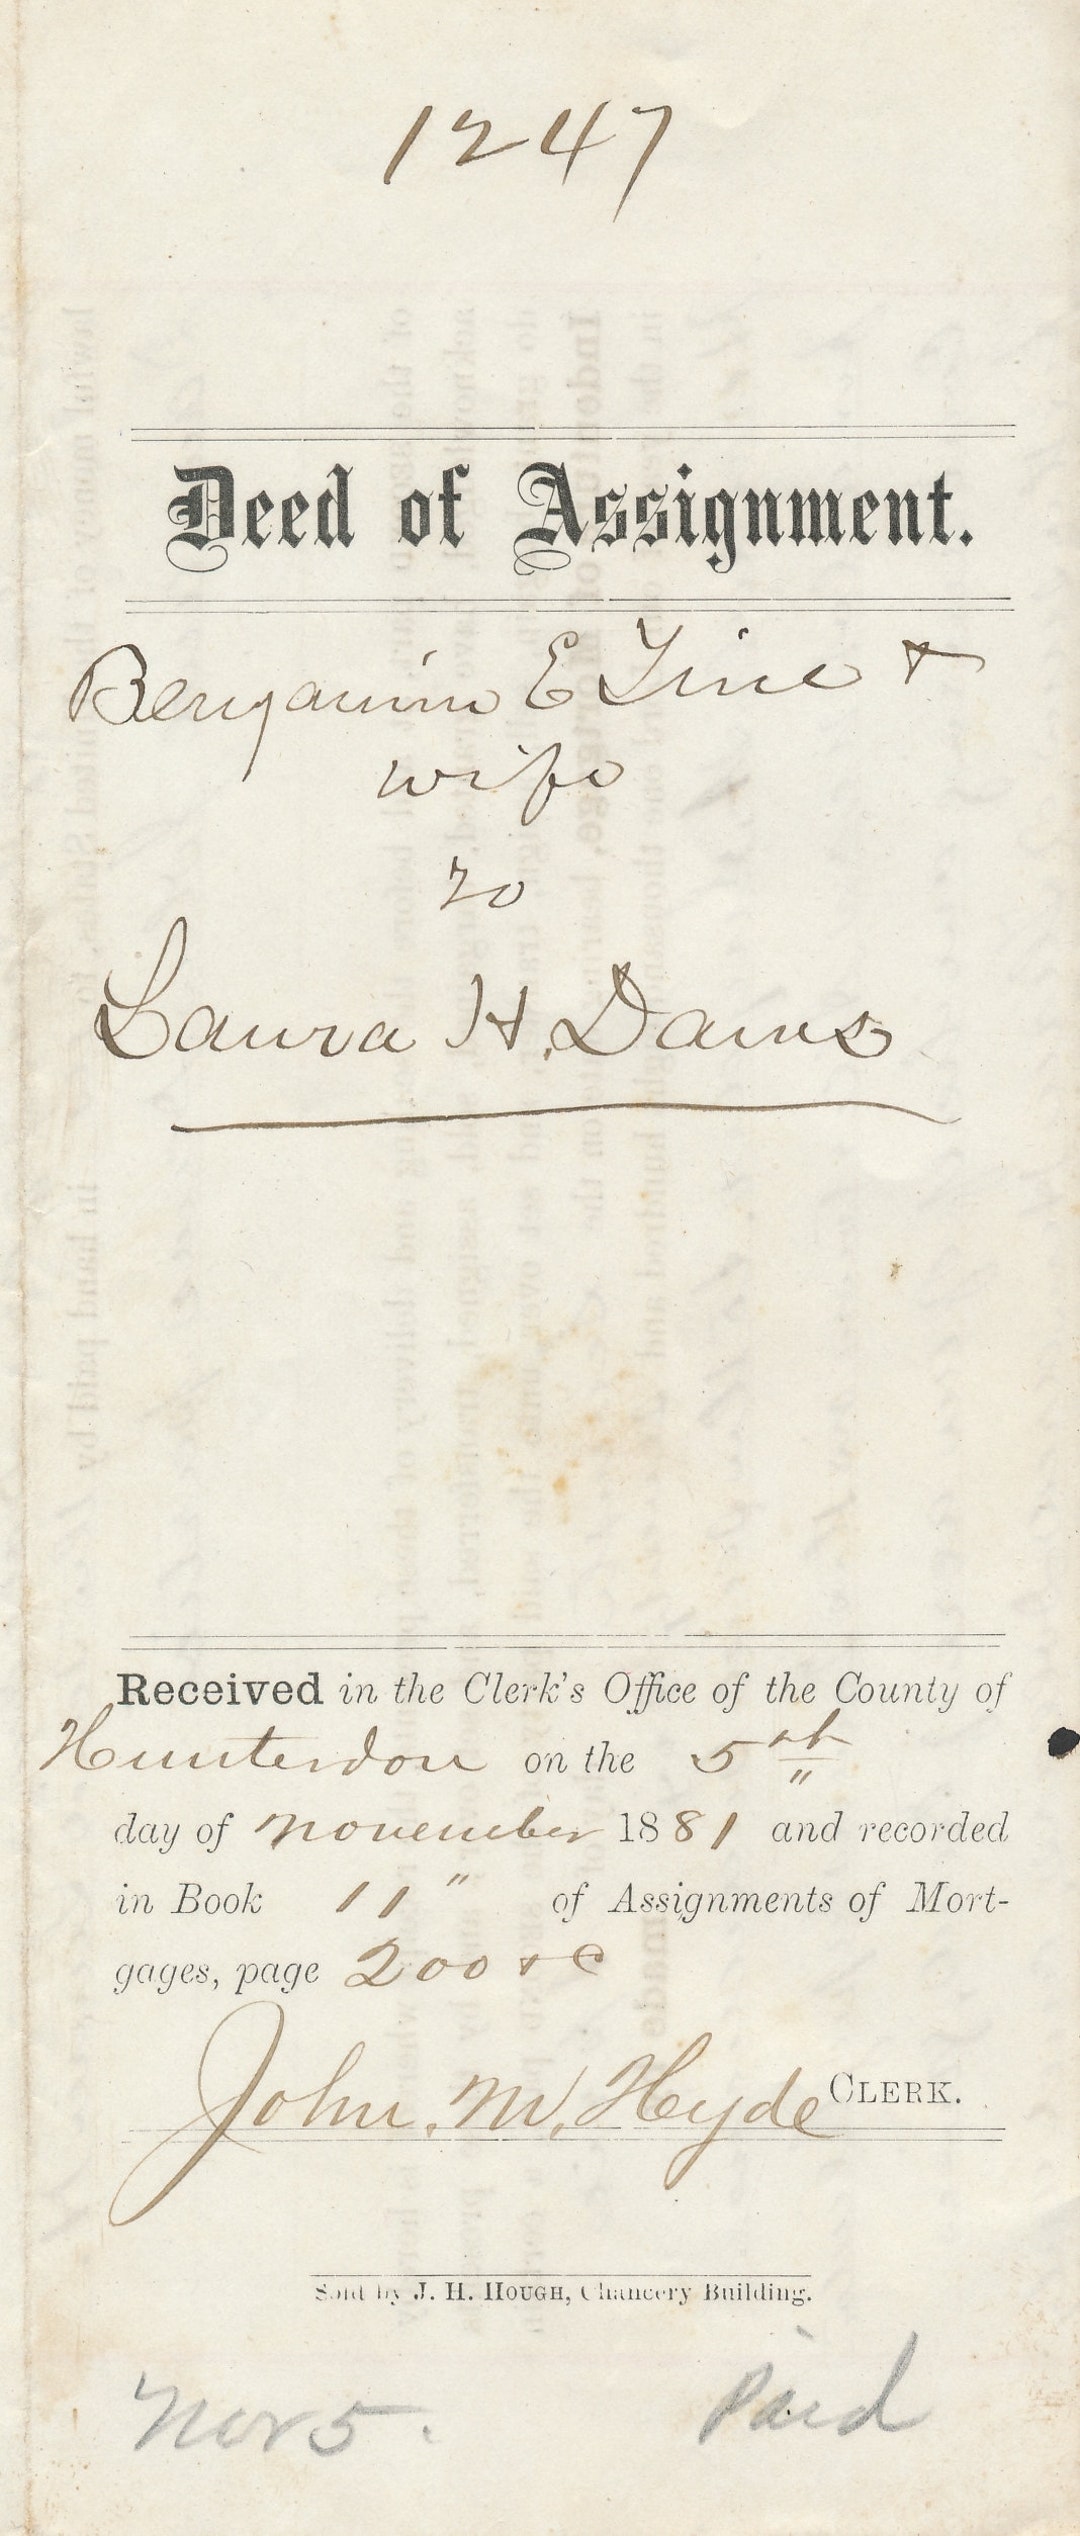 1247
Deed of Assignment.
Benjamin E Tine &
wife
to
Laura H. Davis
Received in the Clerk's Office of the County of
Hunterdon on the 5th "
day of November 1881 and recorded
in Book 11" of Assignments of Mort-
gages, page 200 &c
John. M. Hyde CLERK.
Sold by J. H. HOUGH, Chancery Building.
Nov 5. Paid